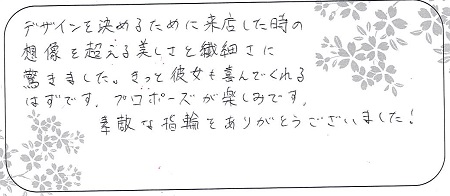 デザインを決めるために来店した時の
想像を超える美しさと繊細さに
驚きました。きっと彼女も喜んでくれる
はずです。プロポーズが楽しみです。
素敵な指輪をありがとうございました!